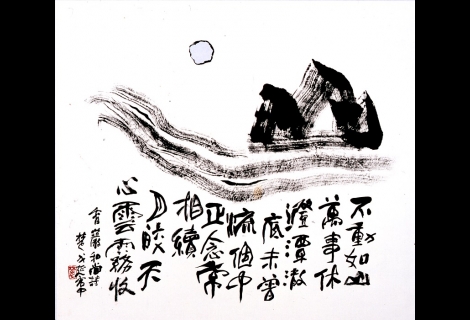 不動如山
萬事休
澄潭徹
底未曾
流個中
正念常
相續
月皎天
心雲霧收
香巖和尚詩
楚戈